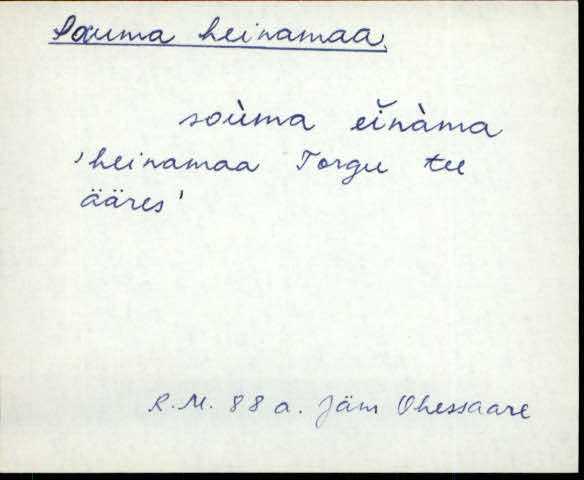 Souma heinamaa.
soùma eĭnàma
'heinamaa Torgu tee
ääres'
R.M. 88 a. Jäm Ohessaare